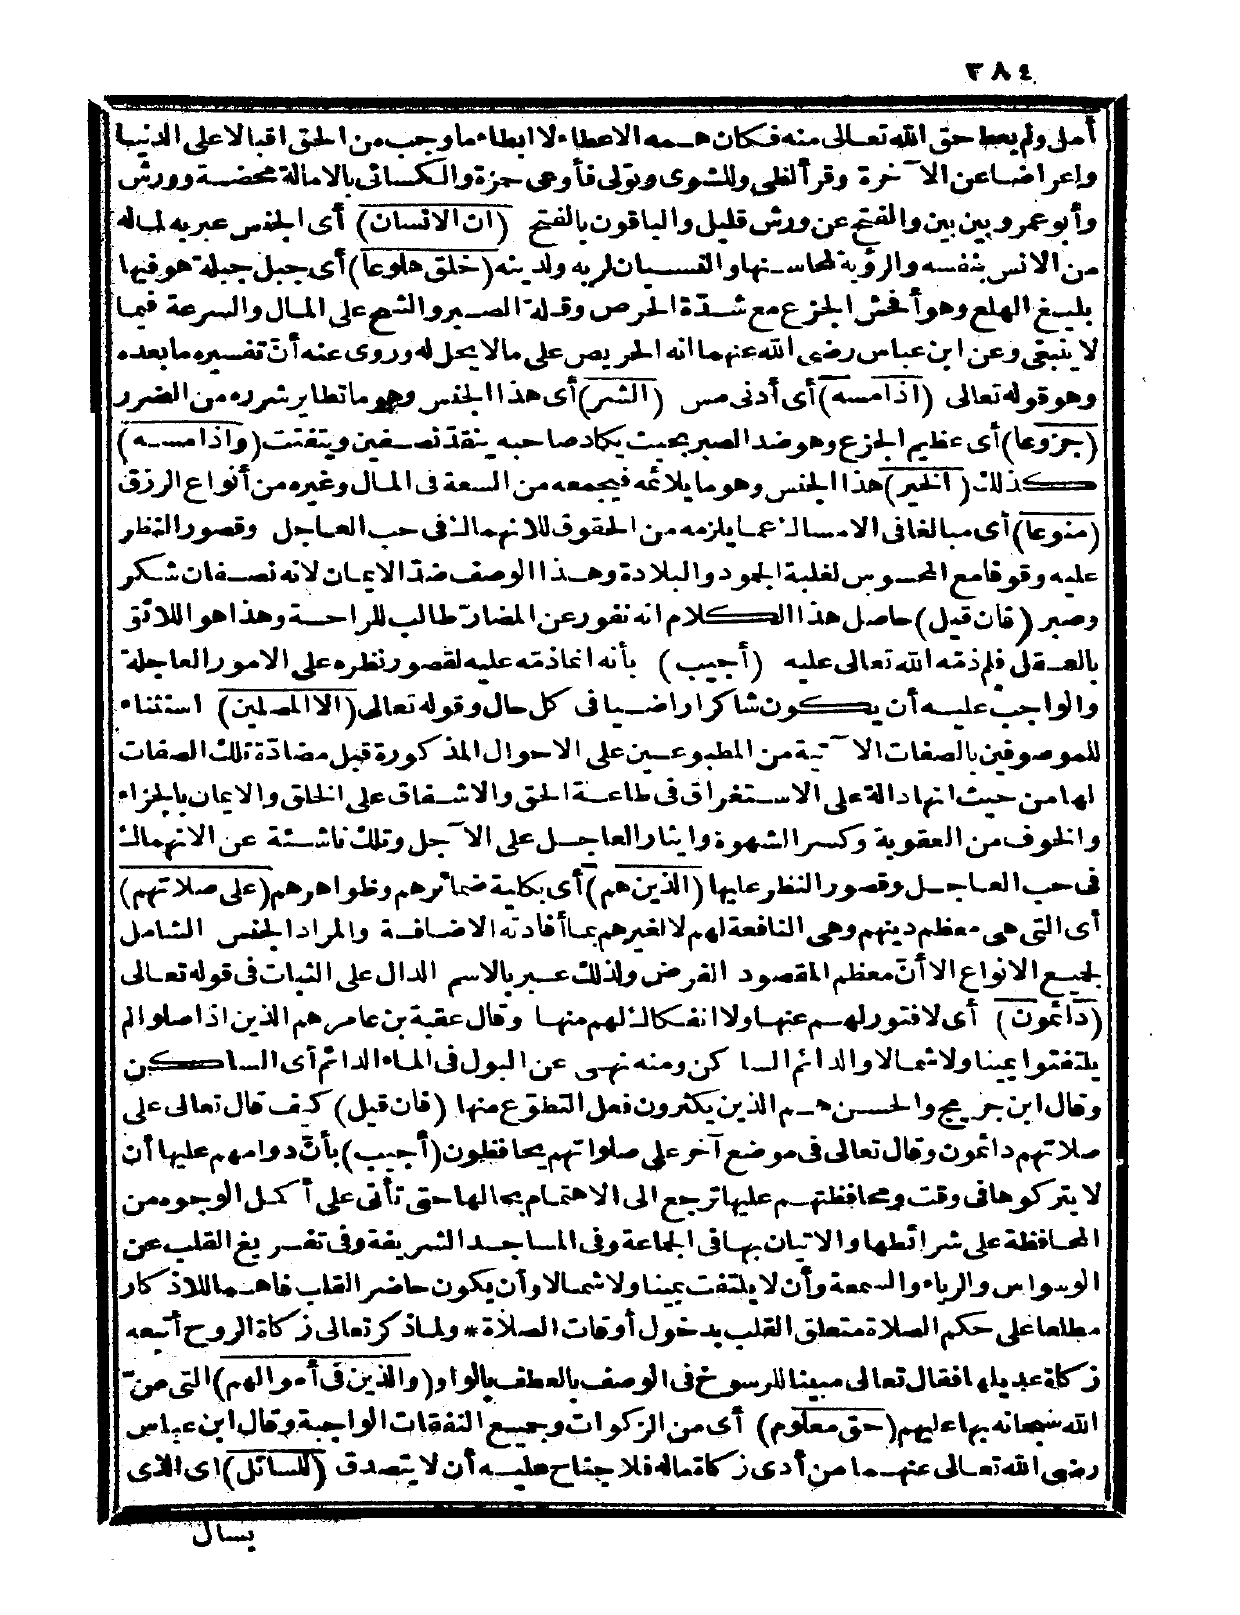 ٣٨٤
أمل ولم يعط حق الله تعالى منه فكان همه الاعطاء لا ابطاء ما وجب من الحق اقبالا على الدنيا
واعراضا عن الآخرة وقرأ لظى وللشوى وتولى فأوعى حمزة والكسائى بالامالة محضة وورش
وأبو عمرو بين بين والفتح عن ورش قليل والباقون بالفتح (ان الانسان) أى الجنس عبر به لماله
من الانس بنفسه والرؤية لمحاسنها والنسيان لربه ولدينه (خلق هلوعا) أى جبل جبلة هو فيها
بليغ الهلع وهو أفحش الجزع مع شدّة الحرص وقلة الصبر والشح على المال والسرعة فيما
لا ينبغى وعن ابن عباس رضى الله عنهما انه الحريص على مالا يحل له وروى عنه أنّ تفسيره ما بعده
وهو قوله تعالى (اذا مسه) أى أدنى مس (الشر) أى هذا الجنس وهو ما تطاير شرره من الضرر
(جزوعا) أى عظيم الجزع وهو ضد الصبر بحيث يكاد صاحبه ينقدّ نصفين ويتفتت (واذا مسه)
كذلك (الخير) هذا الجنس وهو ما يلائمه فيجمعه من السعة فى المال وغيره من أنواع الرزق
(منوعا) أى مبالغا فى الامساك عما يلزمه من الحقوق للانهماك فى حب العاجل وقصور النظر
عليه وقوفا مع المحسوس لغلبة الجمود والبلادة وهذا الوصف ضدّ الايمان لانه نصفان شكر
وصبر (فان قيل) حاصل هذا الكلام انه نفور عن المضارّ طالب للراحة وهذا هو اللائق
بالعقل فلم ذمّه الله تعالى عليه (أجيب) بأنه انما ذمّه عليه لقصور نظره على الامور العاجلة
والواجب عليه أن يكون شاكرا راضيا فى كل حال وقوله تعالى (الا المصلين) استثناء
للموصوفين بالصفات الآتية من المطبوعين على الاحوال المذكورة قبل مضادّة تلك الصفات
لها من حيث انها دالة على الاستغراق فى طاعة الحق والاشفاق على الخلق والايمان بالجزاء
والخوف من العقوبة وكسر الشهوة وايثار العاجل على الآجل وتلك ناشئة عن الانهماك
فى حب العاجل وقصور النظر عليها (الذين هم) أى بكلية ضمائرهم وظواهرهم (على صلاتهم)
أى التى هى معظم دينهم وهى النافعة لهم لا لغيرهم بما أفادته الاضافة والمراد الجنس الشامل
لجميع الانواع الا أنّ معظم المقصود الفرض ولذلك عبر بالاسم الدال على الثبات فى قوله تعالى
(دائمون) أى لا فتور لهم عنها ولا انفكاك لهم منها وقال عقبة بن عامر هم الذين اذا صلوا لم
يلتفتوا يمينا ولا شمالا والدائم الساكن ومنه نهى عن البول فى الماء الدائم أى الساكن
وقال ابن جريج والحسن هم الذين يكثرون فعل التطوّع منها (فان قيل) كيف قال تعالى على
صلاتهم دائمون وقال تعالى فى موضع آخر على صلواتهم يحافظون (أجيب) بأنّ دوامهم عليها أن
لا يتركوها فى وقت ومحافظتهم عليها ترجع الى الاهتمام بحالها حتى تأتى على أكمل الوجوه من
المحافظة على شرائطها والاتيان بها فى الجماعة وفى المساجد الشريفة وفى تفريغ القلب عن
الوسواس والرياء والسمعة وأن لا يلتفت يمينا ولا شمالا وأن يكون حاضر القلب فاهما للاذكار
مطلعا على حكم الصلاة متعلق القلب بدخول أوقات الصلاة * ولما ذكر تعالى زكاة الروح أتبعه
زكاة عديلها فقال تعالى مبينا للرسوخ فى الوصف بالعطف بالواو (والذين فى أموالهم) التى منّ
الله سبحانه بها عليهم (حق معلوم) أى من الزكوات وجميع النفقات الواجبة وقال ابن عباس
رضى الله تعالى عنهما من أدى زكاة ماله فلا جناح عليه أن لا يتصدق (للسائل) اى الذى
يسأل